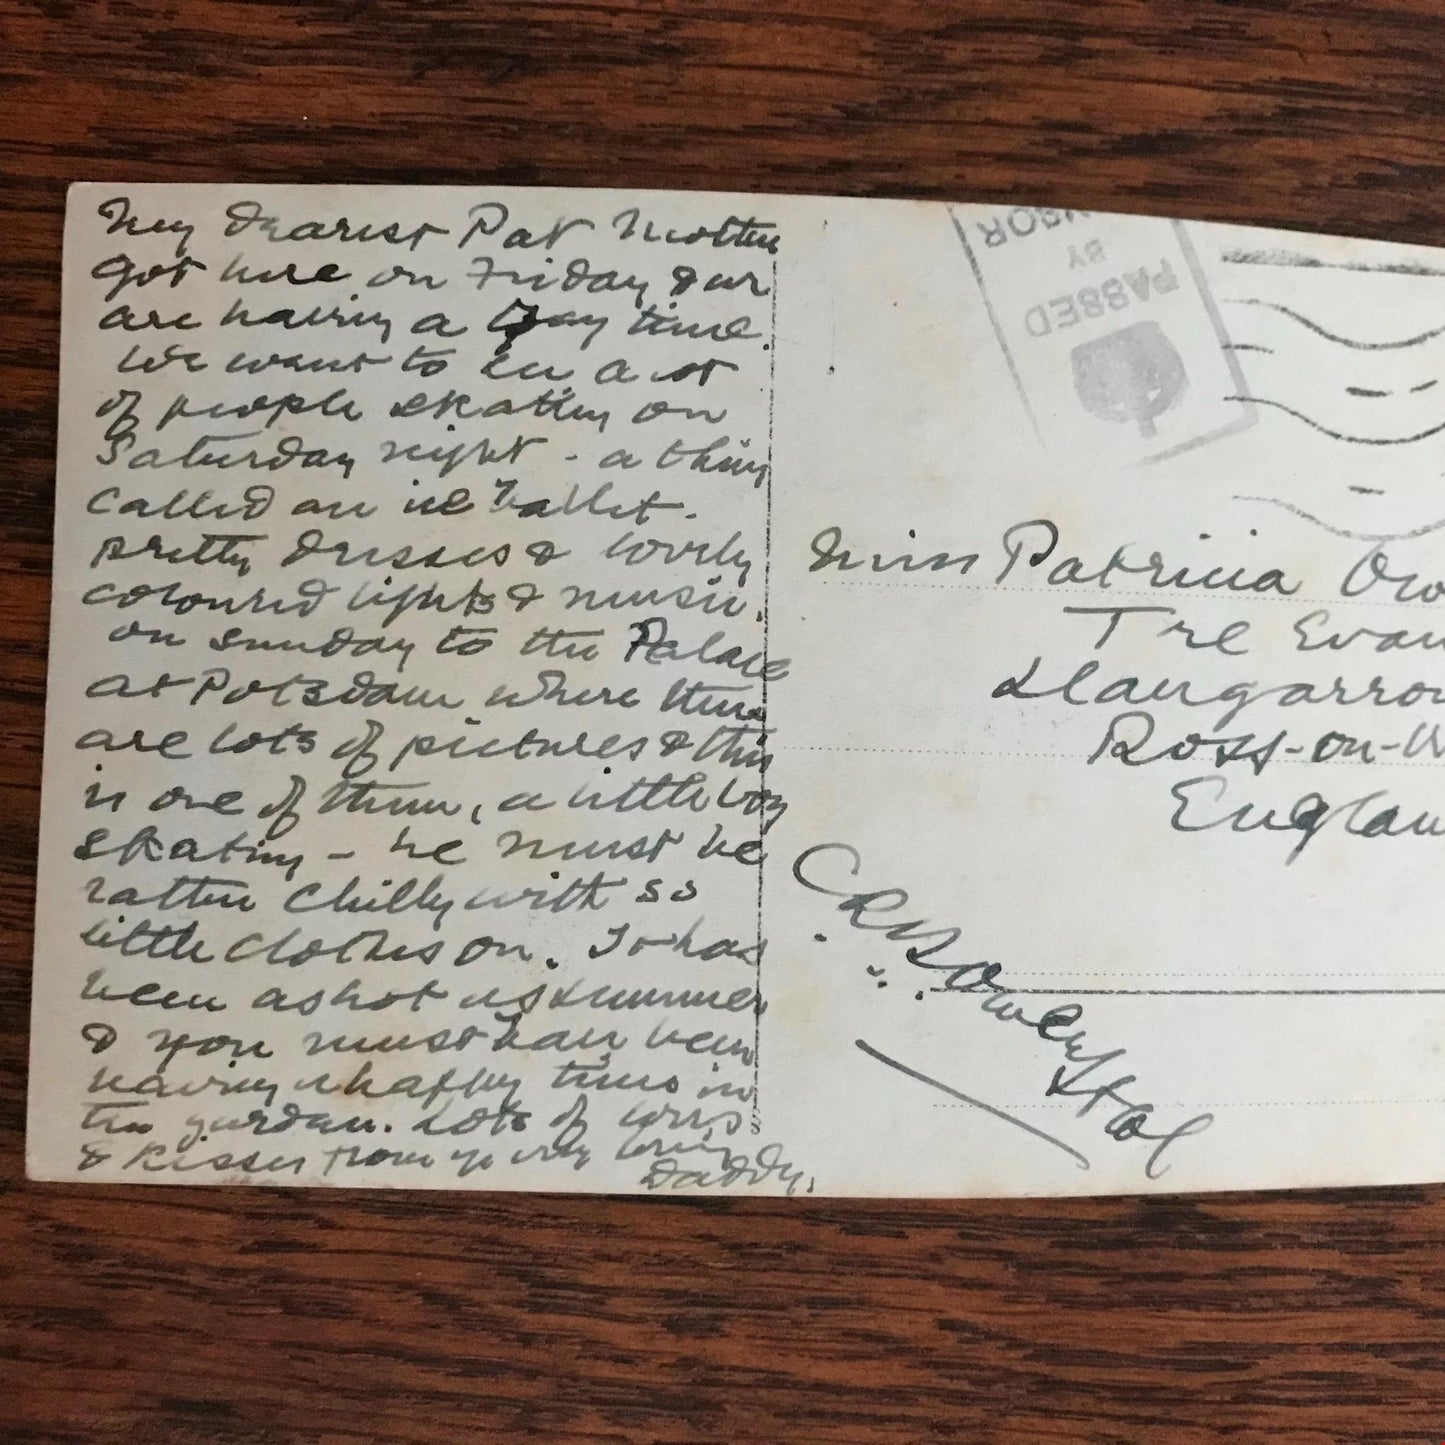 My dearest Pat Mother
got here on Friday & we
are having a gay time.
We went to see a lot
of people skating on
Saturday night - a thing
called an ice ballet.
pretty dresses & lovely
coloured lights & music.
on Sunday to the Palace
at Potsdam where there
are lots of pictures & this
is one of them, a little boy
skating - he must be
rather chilly with so
little clothes on. It has
been as hot as summer
& you must have been
having a happy time in
the garden. Lots of love
& kisses from yr very loving
Daddy.
PASSED
BY
NSOR
Miss Patricia Ow
Tre Evan
Llangarron
Ross-on-W
Englan